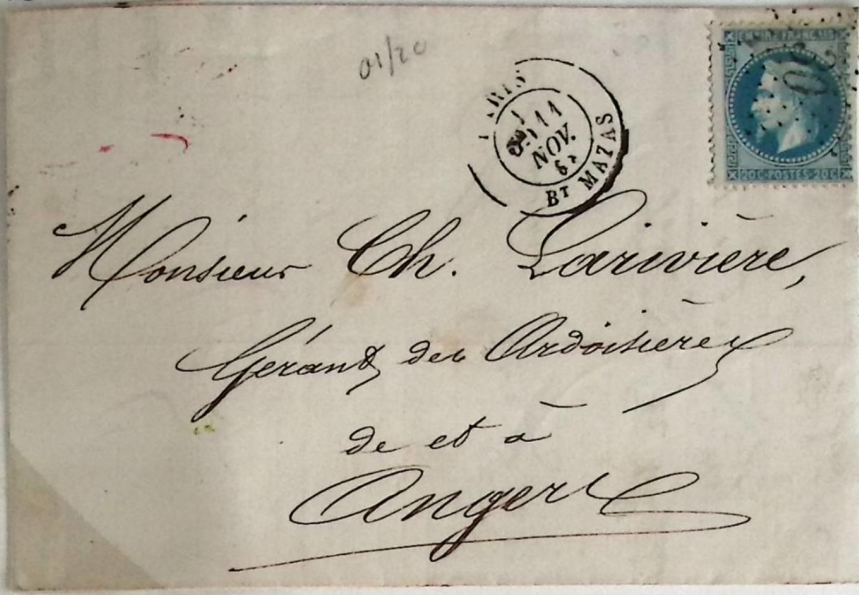 01/20
PARIS
11
NOV.
Bᵀ MAZAS
EMPIRE FRANÇAIS
20 C POSTES 20 C
Monsieur Ch. Larivière,
Gérant des Ardoisières
de et à
Angers